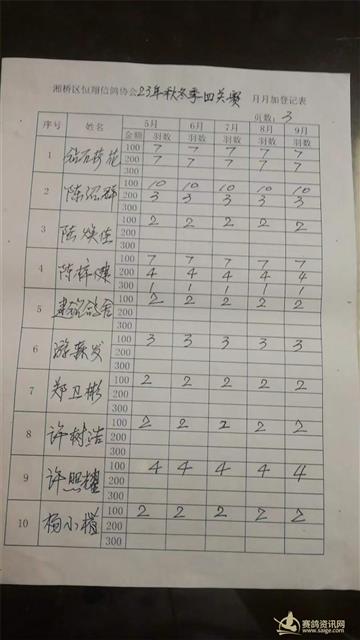 湘桥区恒翔信鸽协会23年秋冬季四关赛 月月加登记表
页数：3
序号 姓名 5月 6月 7月 8月 9月
金额 羽数 羽数 羽数 羽数 羽数
1 100 7 7 7 7 7
200 7 7 7 7 7
300
2 100 10 10 10 10 10
200 3 3 3 3 3
300
3 陈焕佳 100 2 2 2 2 2
200
300
4 陈梓 100 7 7 7 7 7
200 4 4 4 4 4
300 1 1 1 1 1
5 建铭鸽舍 100 2 2 2 2 2
200
300
6 游 发 100 3 3 3 3 3
200
300
7 郑卫彬 100 2 2 2 2 2
200
300
8 许树浩 100 2 2 2 2 2
200
300
9 许照耀 100 4 4 4 4 4
200
300
10 杨小楷 100 2 2 2 2 2
200
300
赛鸽资讯网
www.saige.com